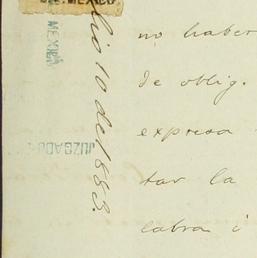 MEXICO
MEXICO
JUZGADO
lio 10 de 1883.
no haber
de oblig.
expresa
tar la
labra i